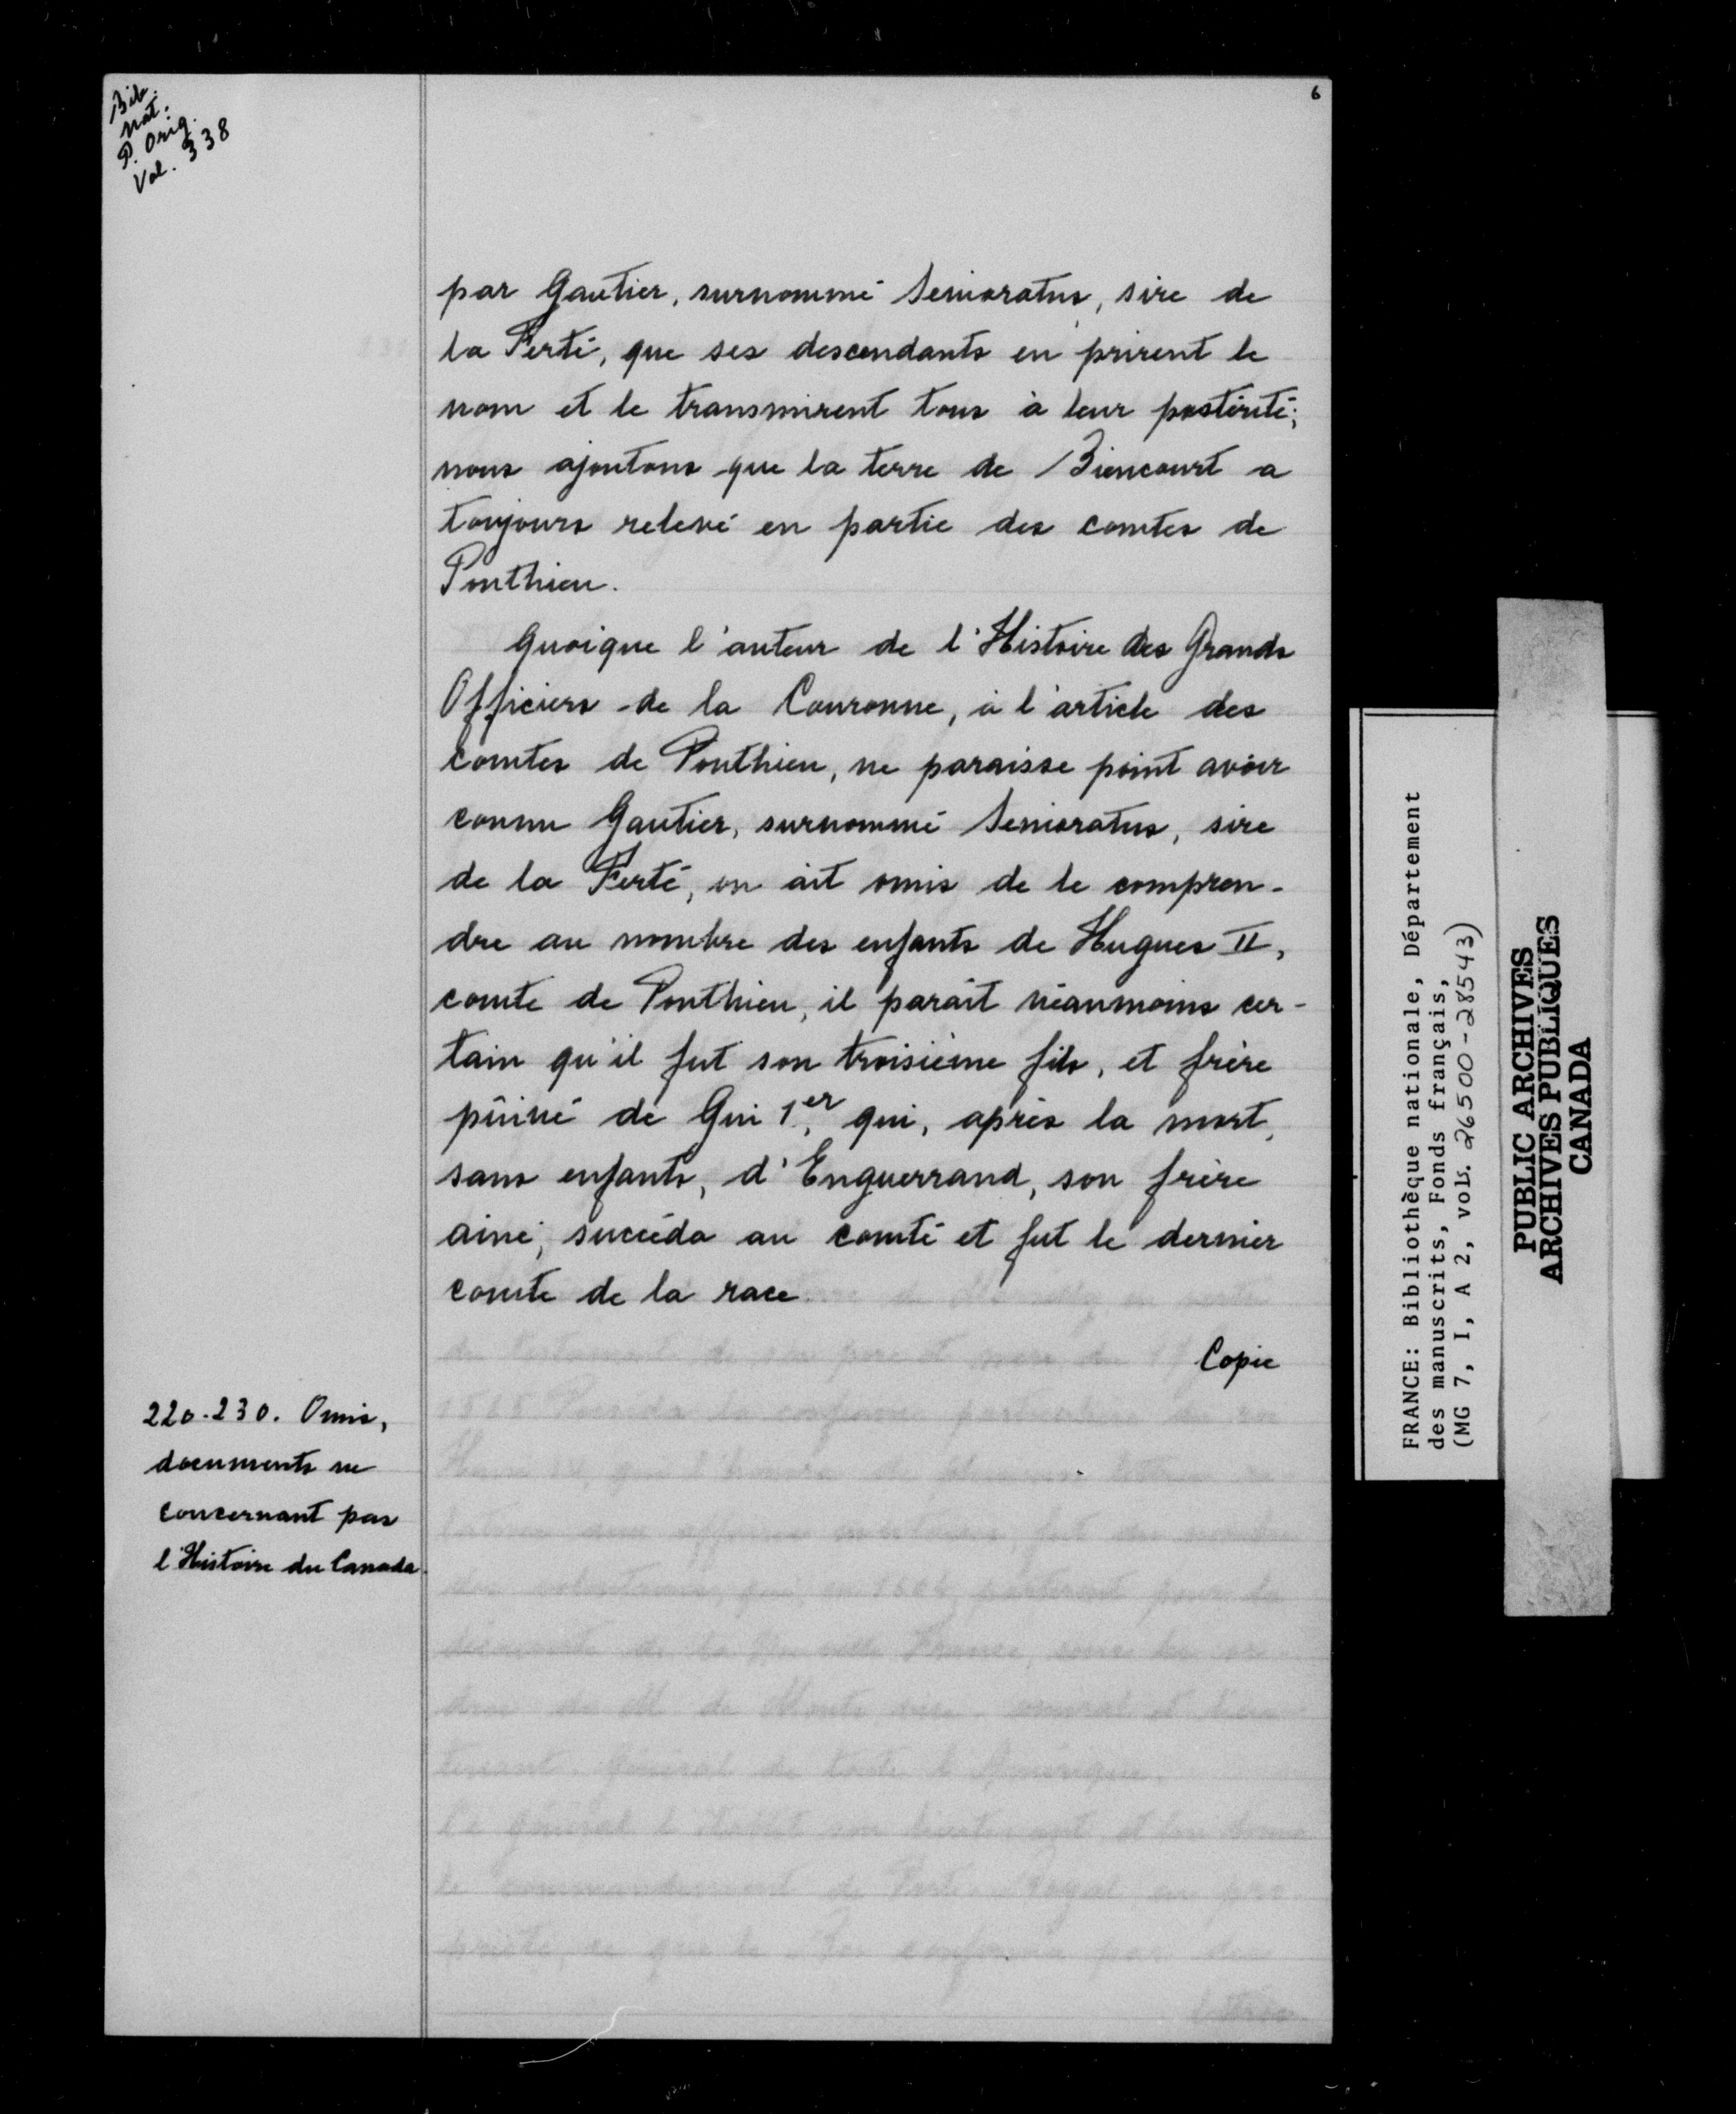 Bib.
nat.
P. Orig.
Vol. 338
6
par Gautier, surnommé Senioratus, sire de
la Ferté, que ses descendants en prirent le
nom et le transmirent tous à leur postérité;
nous ajoutons que la terre de Biencourt a
toujours relevé en partie des comtes de
Ponthieu.
Quoique l'auteur de l'Histoire des Grands
Officiers de la Couronne, à l'article des
comtes de Ponthieu, ne paraisse point avoir
connu Gautier, surnommé Senioratus, sire
de la Ferté, ou ait omis de le compren-
dre au nombre des enfants de Hugues II,
comte de Ponthieu, il parait néanmoins cer-
tain qu'il fut son troisième fils, et frère
pûiné de Gui 1er, qui, après la mort,
sans enfants, d'Enguerrand, son frère
ainé, succéda au comté et fut le dernier
comte de la race
Copie
220-230. Omis,
documents ne
concernant pas
l'Histoire du Canada.
FRANCE: Bibliothèque nationale, Département
des manuscrits, Fonds français,
(MG 7, I, A 2, vols. 26500-28543)
PUBLIC ARCHIVES
ARCHIVES PUBLIQUES
CANADA